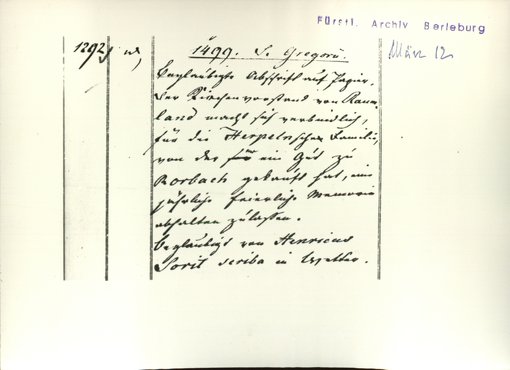 Fürstl. Archiv Berleburg
März 12
1292,
1499. S. Gregorii.
Beglaubigte Abschrift auf Papier.
Der Kirchenvorstand von Raum-
land macht sich verbindlich,
für die Herpeln'sche Familie,
von der für ein Gut zu
Rorbach gekauft hat, eine
jährliche feierliche Memorie
abhalten zu lassen.
Beglaubigt von Henricus
scriba in Wetter.